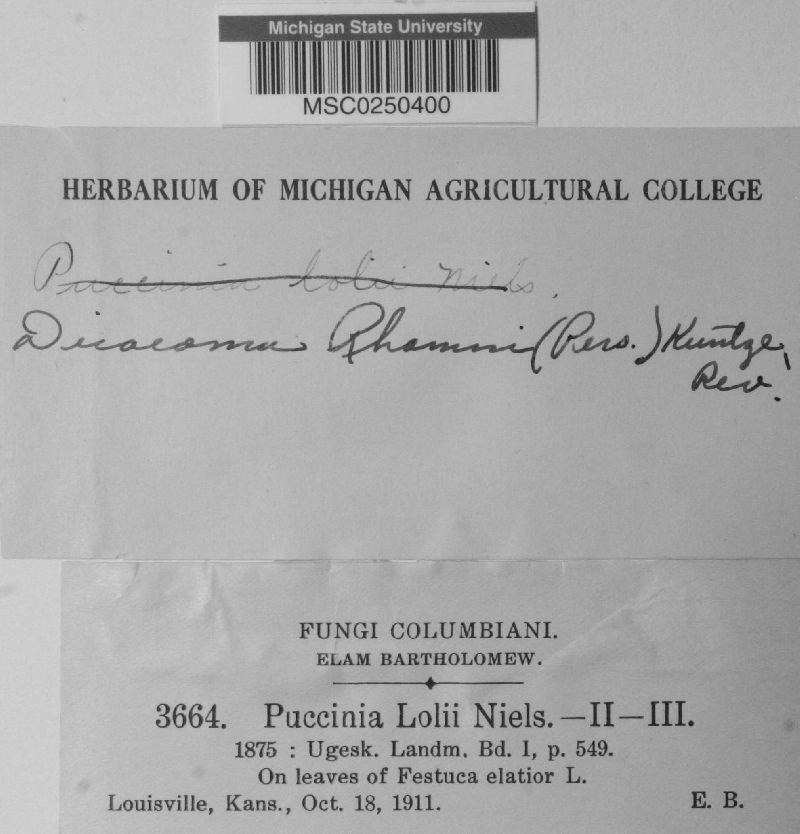 Michigan State University
MSC0250400
HERBARIUM OF MICHIGAN AGRICULTURAL COLLEGE
Puccinia lolii Niels.
Dicaeoma Rhamni (Pers.) Kuntze,
Rev.
FUNGI COLUMBIANI.
ELAM BARTHOLOMEW.
3664. Puccinia Lolii Niels.—II—III.
1875 : Ugesk. Landm. Bd. I, p. 549.
On leaves of Festuca elatior L.
Louisville, Kans., Oct. 18, 1911. E. B.